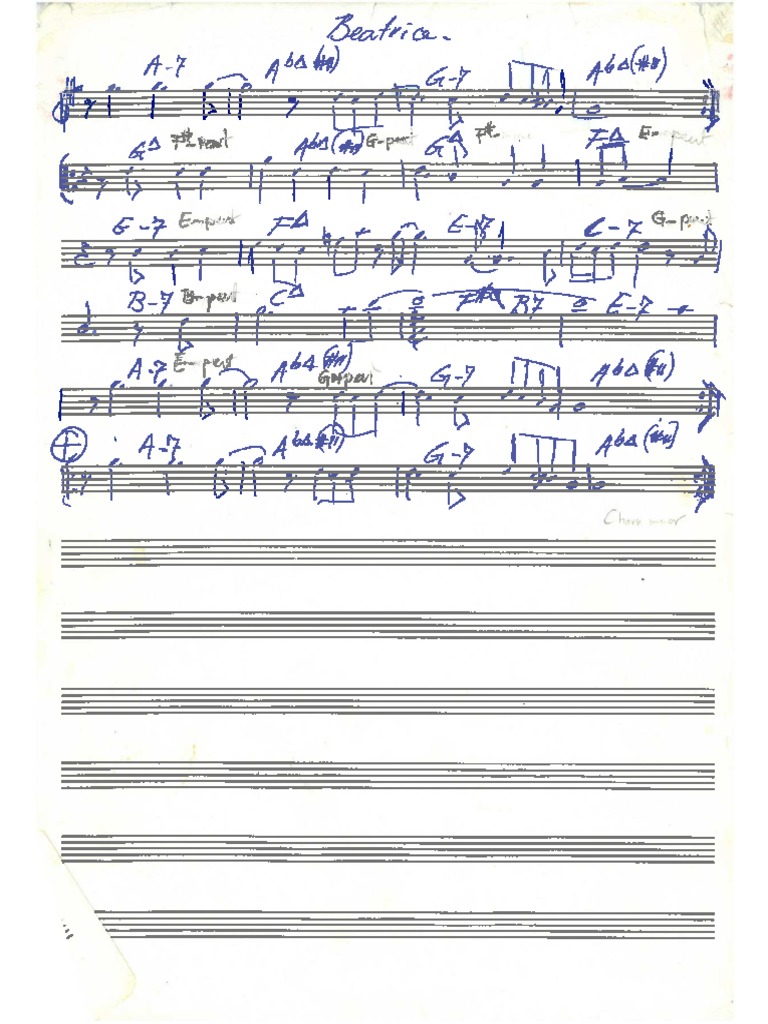 Beatrice.
A-7 AbΔ(#11) G-7 AbΔ(#11)
GΔ F#-pent AbΔ(#11) G-pent GΔ F#- FΔ E-pent
E-7 E-pent FΔ E-7 C-7 G-pent
B-7 B-pent CΔ B7 E-7
A-7 E-pent AbΔ(#11) G-7 AbΔ(#11)
A-7 AbΔ(#11) G-7 AbΔ(#11)